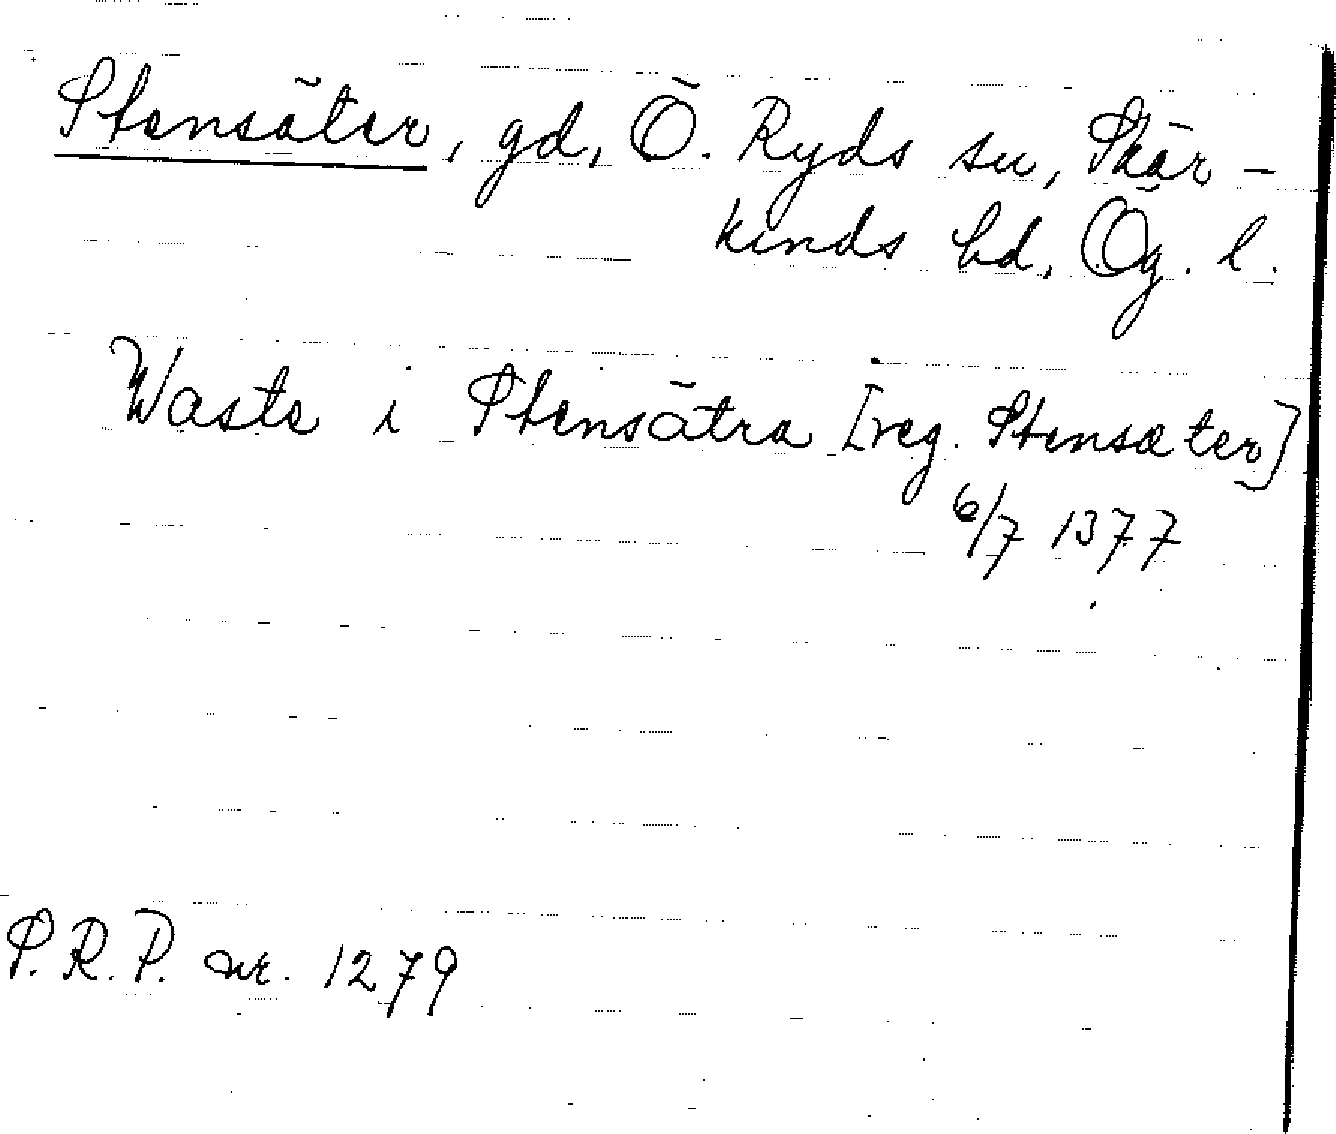 Stensäter, gd, Ö. Ryds sn, Skär-
kinds hd, Ög. l.
Waste i Stensätra [reg. Stensæter]
6/7 1377
P.R.P. nr. 1279